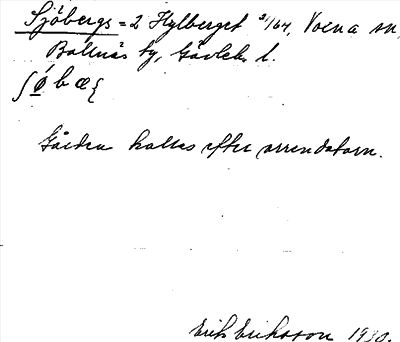 Sjöbergs = 2 Hylberget 2/64, Voxna sn,
Bollnäs ty, Gävleb. l.
ʃǿbæ{
Gården kallas efter arrendatorn.
Erik Eriksson 1930.